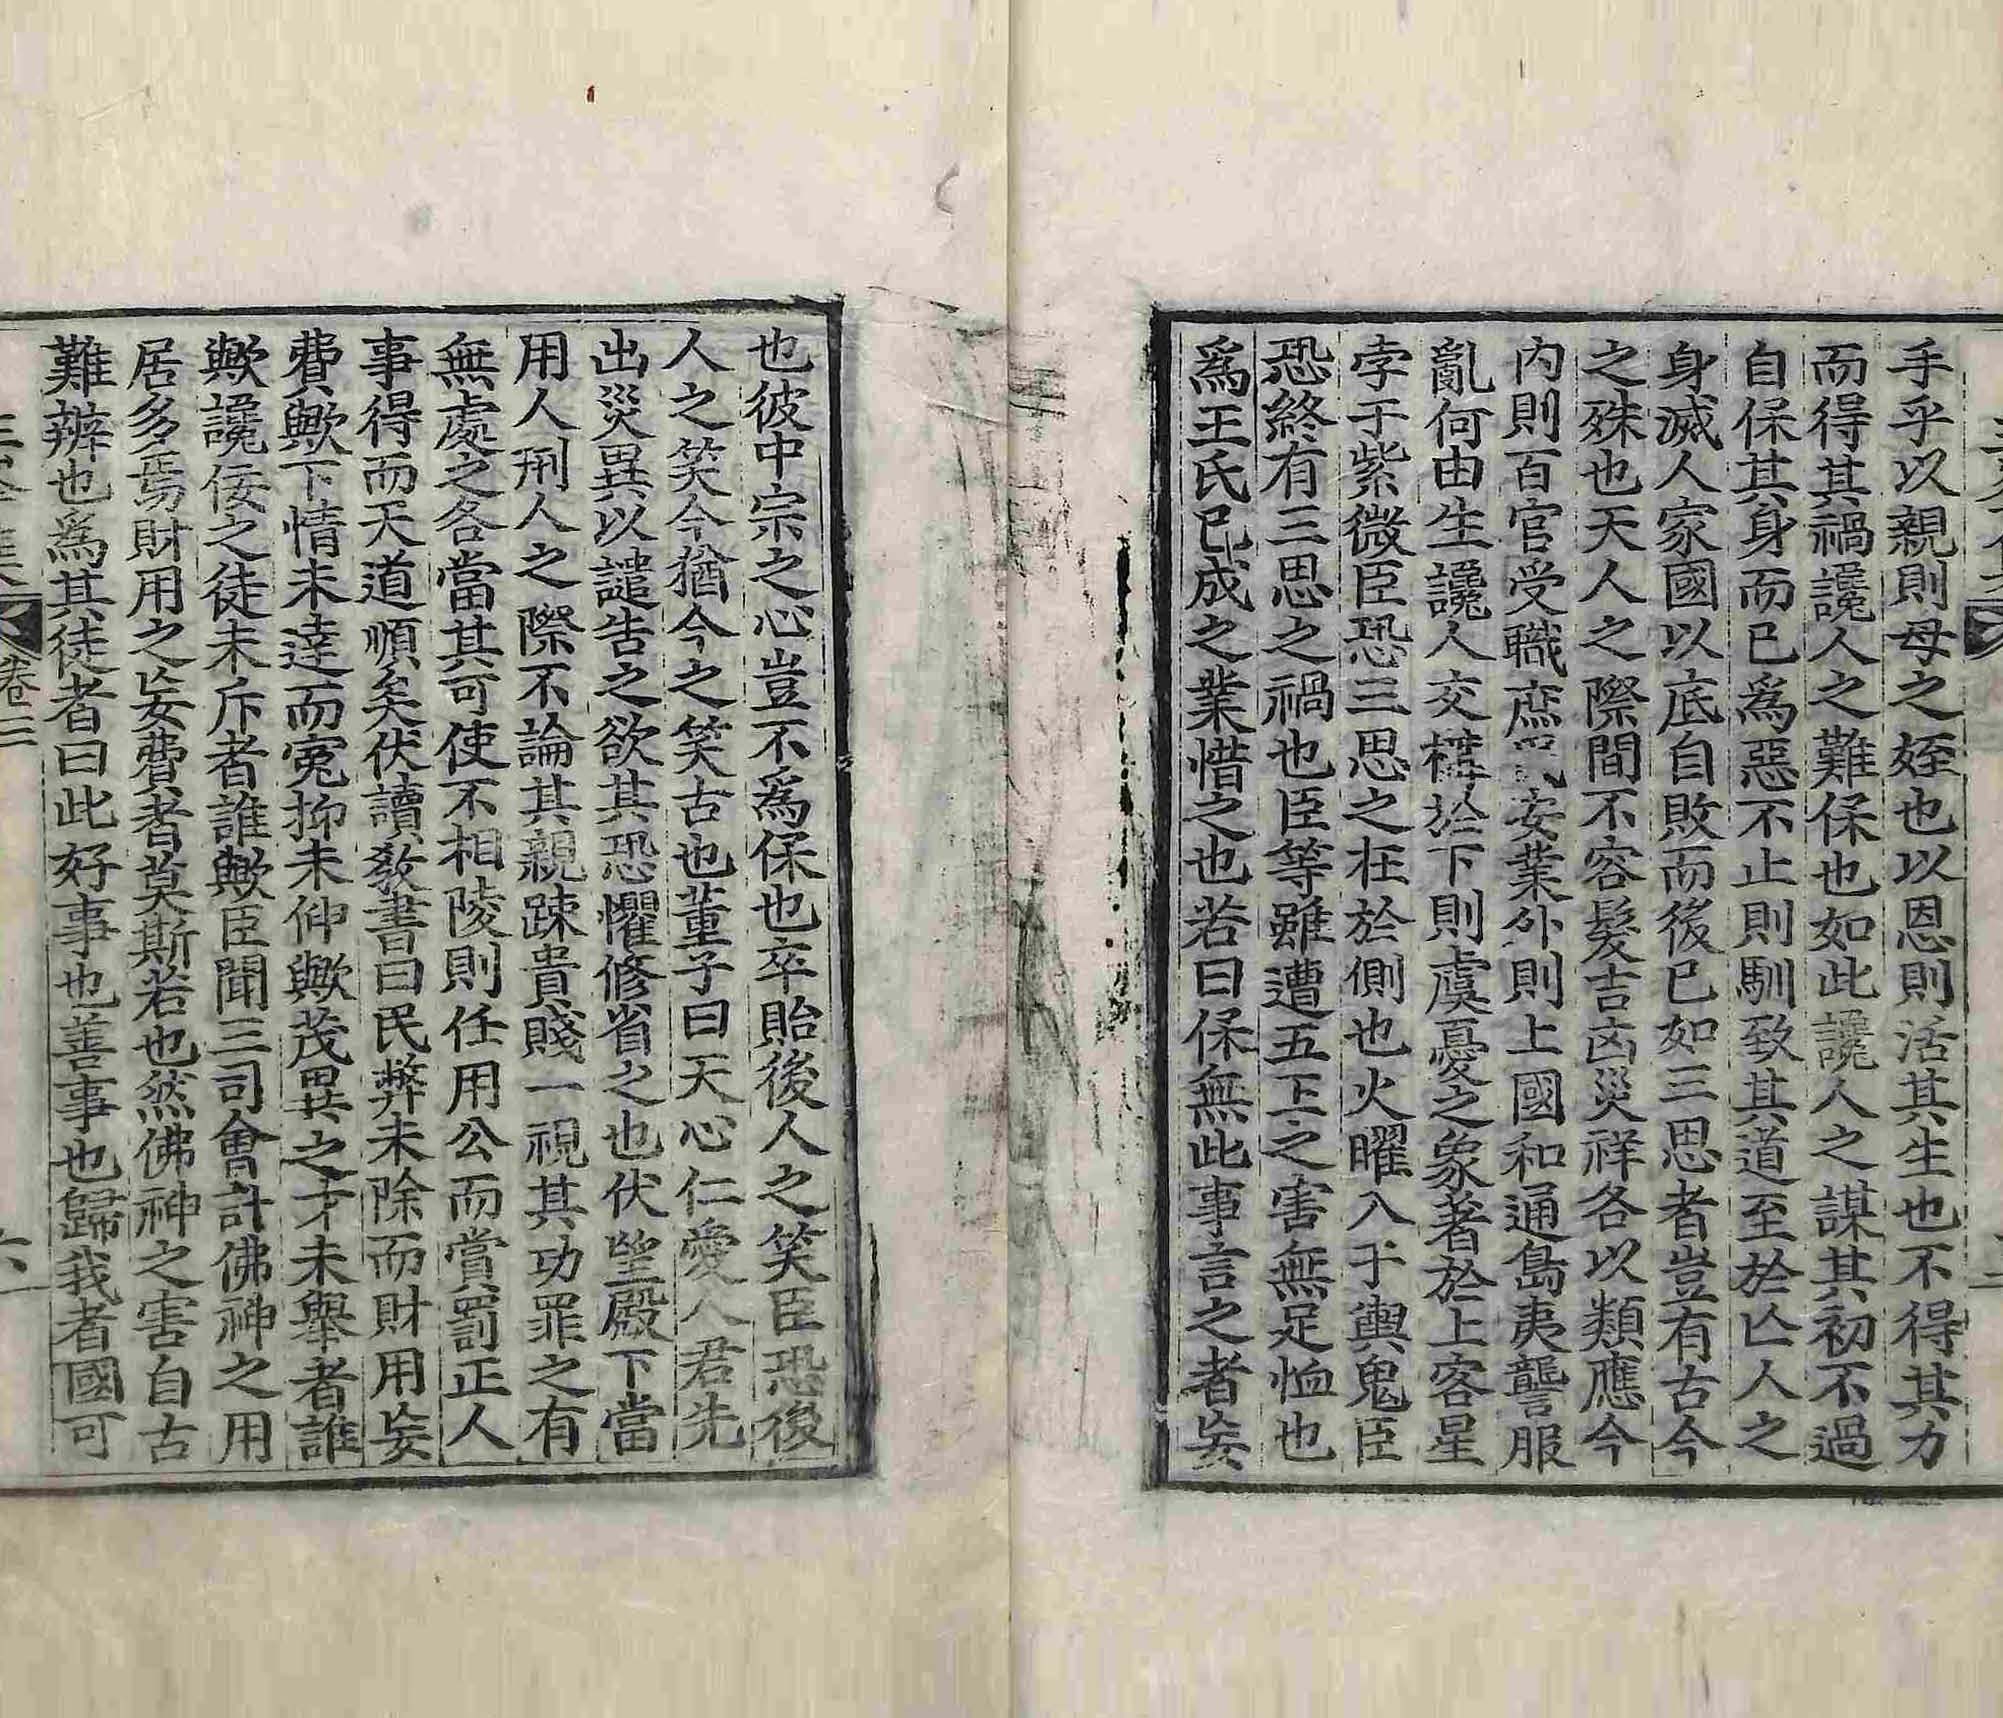 手乎以親則母之姪也以恩則活其生也不得其力
而得其禍讒人之難保也如此讒人之謀其初不過
自保其身而已爲惡不止則馴致其道至於亾人之
身滅人家國以底自敗而後已如三思者豈有古今
之殊也天人之際間不容髮吉凶災祥各以類應今
內則百官受職庶民安業外則上國和通島夷讋服
亂何由生讒人交構於下則虞憂之象著於上客星
孛于紫微臣恐三思之在於側也火曜入于輿鬼臣
恐終有三思之禍也臣等雖遭五王之害無足恤也
爲王氏已成之業惜之也若曰保無此事言之者妄
也彼中宗之心豈不爲保也卒貽後人之笑臣恐後
人之笑今猶今之笑古也董子曰天心仁愛人君先
出災異以譴告之欲其恐懼修省之也伏望殿下當
用人刑人之際不論其親踈貴賤一視其功罪之有
無處之各當其可使不相陵則任用公而賞罰正人
事得而天道順矣伏讀敎書曰民弊未除而財用妄
費歟下情未達而寃抑未伸歟茂異之才未舉者誰
歟讒佞之徒未斥者誰歟臣聞三司會計佛神之用
居多焉財用之妄費者莫斯若也然佛神之害自古
難辨也爲其徒者曰此好事也善事也歸我者國可
卷三
六